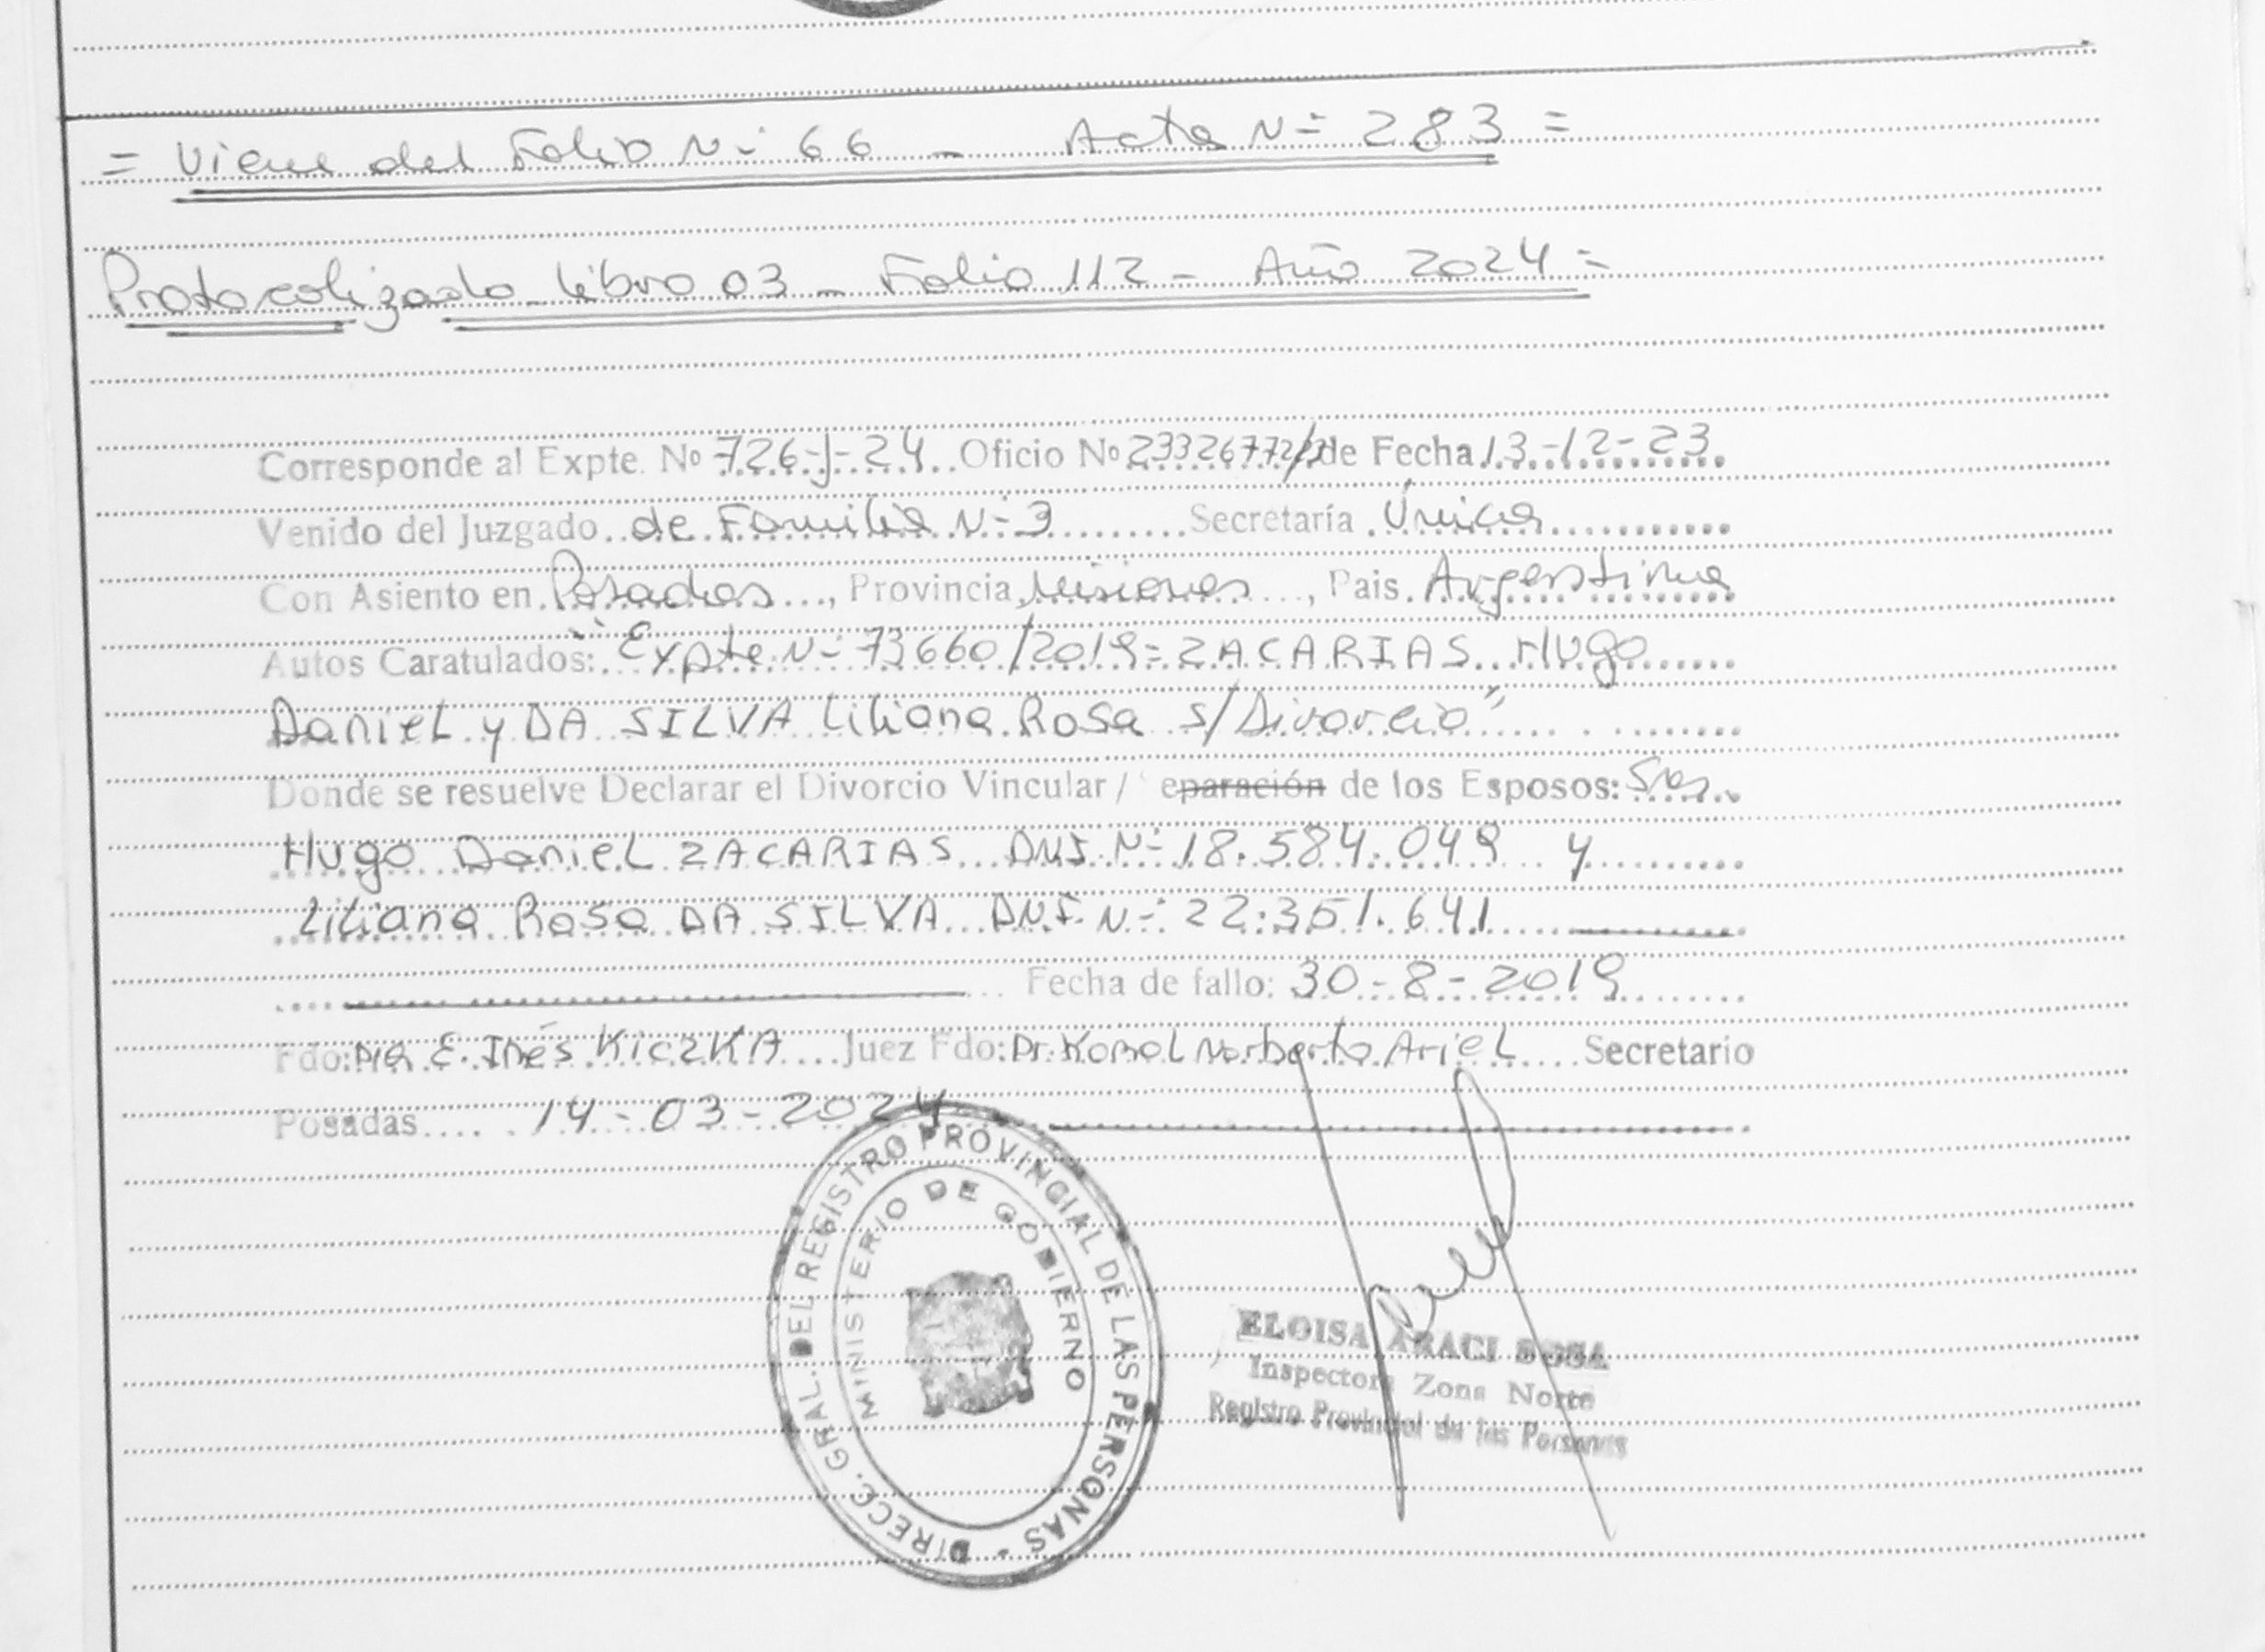 = Viene del Folio Nº 66 - Acta Nº 283 =
Protocolizado - Libro 03 - Folio 112 - Año 2024 =
Corresponde al Expte. Nº 726-J-24 Oficio Nº de Fecha 13-12-23
Venido del Juzgado de Familia Nº 3 Secretaría Única
Con Asiento en Posadas, Provincia Misiones, Pais. Argentina
Autos Caratulados: "Expte Nº 73660/2019 = ZACARIAS Hugo
Daniel y DA SILVA Liliana Rosa s/Divorcio"
Donde se resuelve Declarar el Divorcio Vincular / eparación de los Esposos: Sres.
Hugo Daniel ZACARIAS DNI Nº 18.584.049 y
Liliana Rosa DA SILVA DNI Nº 22.351.641
Fecha de fallo: 30-8-2019
Fdo: Dra E. Inés KiczKA Juez Fdo: Dr. Korol Norberto Ariel Secretario
Posadas 14-03-2024
DIRECC. GRAL. DEL REGISTRO PROVINCIAL DE LAS PERSONAS -
MINISTERIO DE GOBIERNO
ELOISA ARACI SOSA
Inspectora Zona Norte
Registro Provincial de las Personas